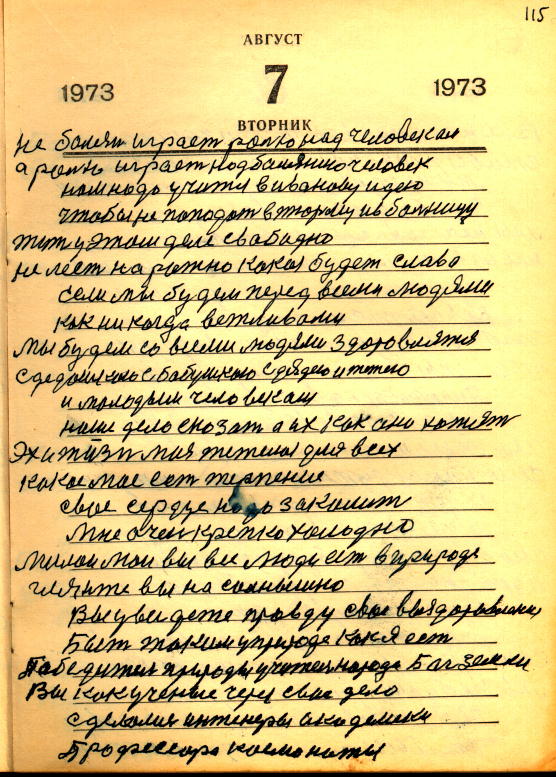 115
АВГУСТ
7
1973 1973
ВТОРНИК
не болезн играет ролю над человекам
а ролю играет над болезнию человек
нам надо учится в иванову идею
чтобы не пападат в тюрму и в болницу
жит у этом деле свабидно
не лест на ражно какая будет слава
если мы будем перед всеми людями
как никогда вежливами
мы будем со всеми людями здаровлятся
с дедошкаю с бабушкаю с дядею и тётею
и молодым человекам
наше дело сказат а их как ани хотят
Эх и жизн моя тяжелая для всех
какое мае ест терпение
свое сердце надо закалит
Мне очен крепко холодно
милаи маи вы все люди ест в природе
гляните вы на солнышко
Вы увидете правду свае выздаравление
Быт таким у природе как я ест
Победител природы учител народа Бог земли
Вы как ученые через свае дело
сделалис инженеры академики
Профессора космонаты